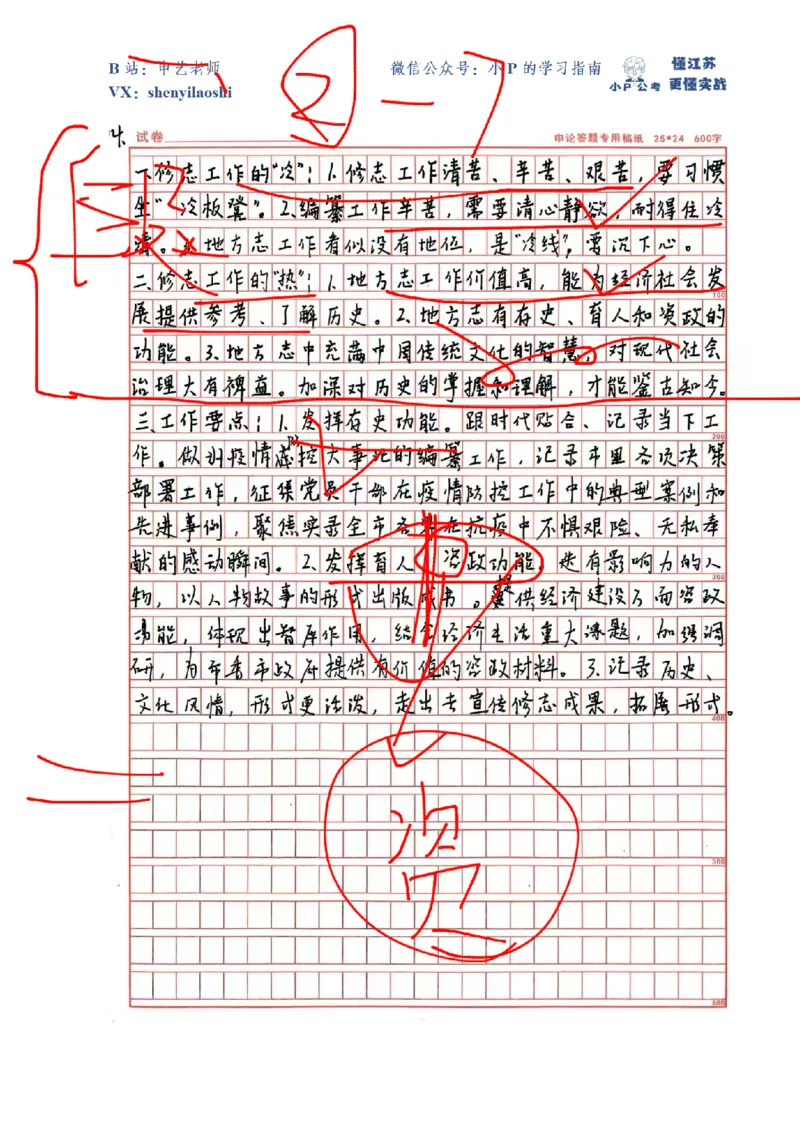 B 站：申艺老师
微信公众号：小 P 的学习指南
VX：shenyilaoshi
小P公考
懂江苏
更懂实战
试卷
申论答题专用稿纸 25*24 600字
一、修志工作的“冷”：1.修志工作清苦、辛苦、艰苦，要习惯
坐“冷板凳”。2.编纂工作辛苦，需要清心静欲，耐得住冷
清。3.地方志工作者似没有地位，是“冷线”，要沉下心。
二、修志工作的“热”：1.地方志工作价值高，能为经济社会发
100
展提供参考、了解历史。2.地方志有存史、育人和资政的
功能。3.地方志中充满中国传统文化的智慧，对现代社会
治理大有裨益。加深对历史的掌握和理解，才能鉴古知今。
三、工作要点：1.发挥存史功能。跟时代贴合、记录当下工
200
作。做到疫情防控大事记的编纂工作，记录市里各项决策
部署工作，征集党员干部在疫情防控工作中的典型案例和
先进事例，聚焦实录全市各界在抗疫中不惧艰险、无私奉
献的感动瞬间。2.发挥育人、资政功能。选有影响力的人
300
物，以人物故事的形式出版成书。提供经济建设方面咨政
功能，体现出智库作用，结合经济生活重大课题，加强调
研，为市委市政府提供有价值的咨政材料。3.记录历史、
文化风情，形式更活泼，走出去宣传修志成果，拓展形式。
400
资
500
600